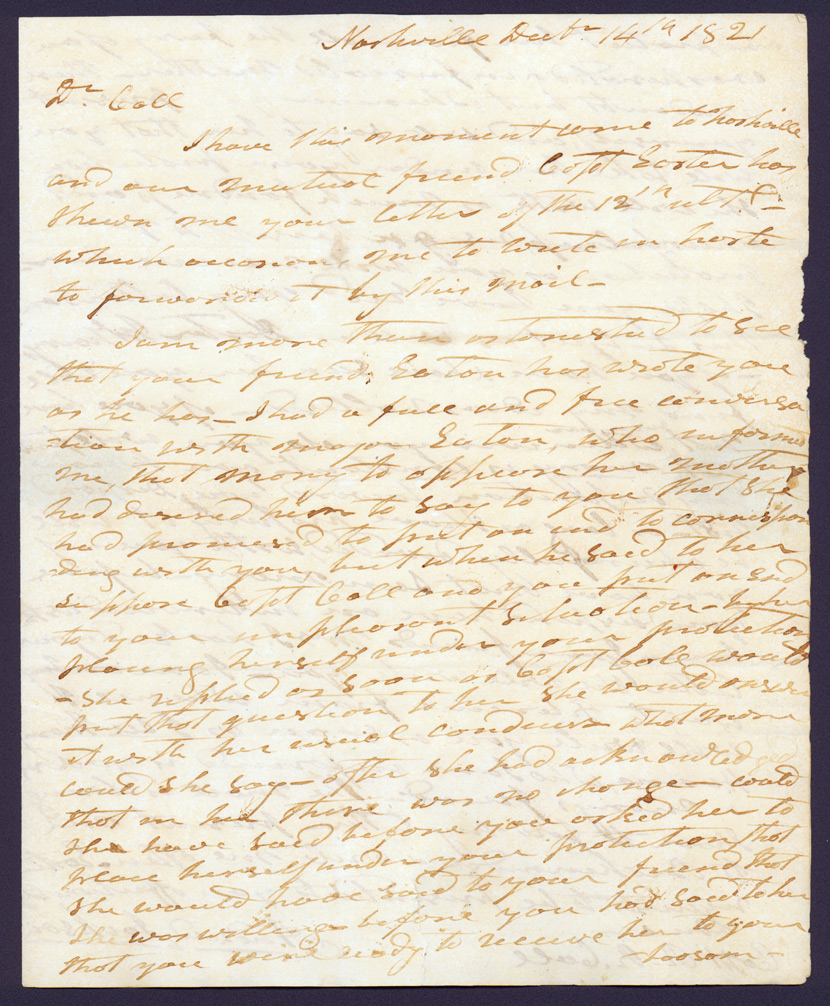 Nashville Decbr. 14th 1821
Dr. Call
I have this moment come to Nashville
and our mutual friend Capt Easter has
shewn me your letter of the 12th ult
which occasions me to write in haste
to forward it by this mail—
I am more than astonished to see
that your friend Eaton has wrote you
as he has— I had a full and free conversa
-tion with major Eaton, who informed
me, that mary to appease her mother
had desired him to say to you that she
had promised to put an end to correspon
-ding with you, but when he said to her
suppose Capt Call and you put an end
to your unpleasant situation— by her
placing herself under your protection
— She replied as soon as Capt Call would
put that question to her she would answer
it with her usual candeur what more
could she say— after she had acknowledged
that in her there was no change— could
she have said before you asked her to
place herself under your protection, that
she would have said to your friend that
she was willing before you had said to her
that you were ready to receive her to your
boosom—